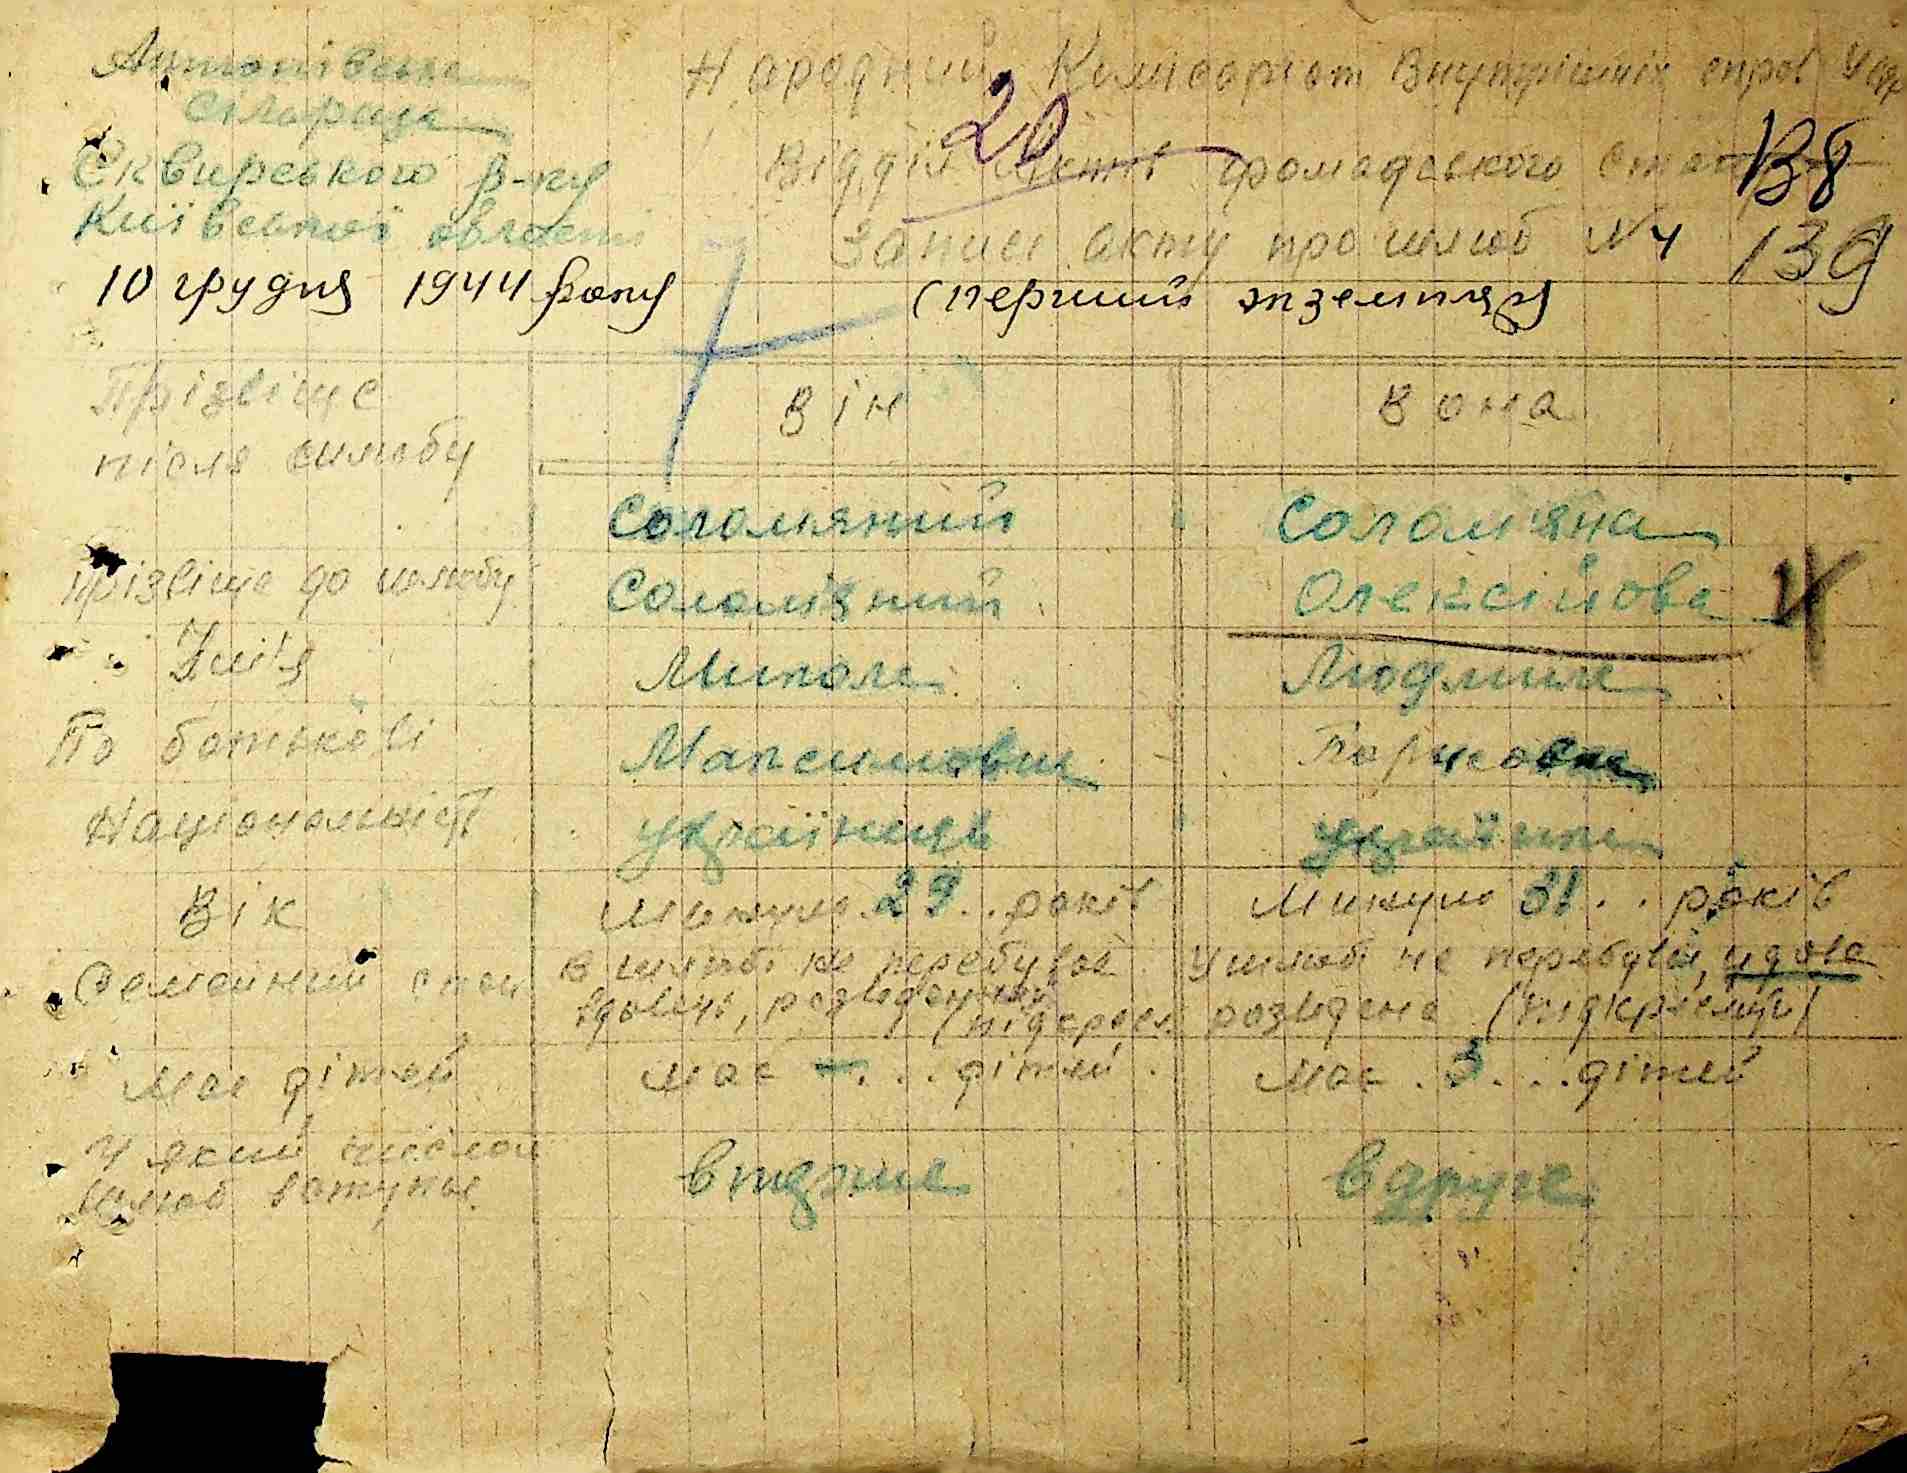 Антонівська
сільрада
Сквирського р-ну
Київської області
10 грудня 1944 року
Народний Комісаріат Внутрішніх справ УССР
20
Відділ Актів громадського стану
В8
Запис акту про шлюб №4
139
(перший экземпляр)
Прізвіще після шлюбу
Він
Вона
Соломяний
Солом'яна
Прізвіще до шлюбу
Соломяний
Олексійова
Імі'я
Микола
Людмила
По батькові
Максимович
Національність
українець
українка
Вік
Минуло 29.. років
Минуло 31.. років
Семейний стан
В шлюбі не перебував
вдовець, розведенний (підкресл
У шлюбі не перебував, удова
розведена (підкреслити)
має дітей
має –... дітей
має.3...дітей
У який числом
шлюб вступає
вперше
вдруге